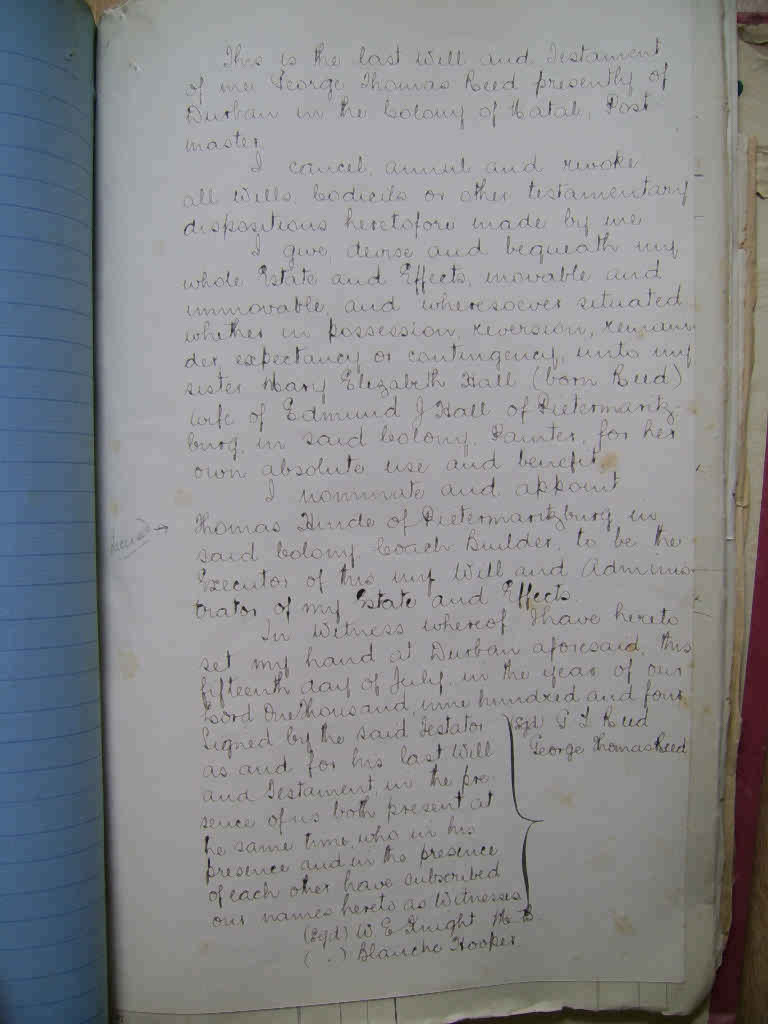 This is the last Will and Testament
of me George Thomas Reed presently of
Durban in the Colony of Natal, Post
master,
I cancel, annul and revoke
all Wills, Codicils or other testamentary
dispositions heretofore made by me
I give, devise and bequeath my
whole Estate and Effects, movable and
immovable, and wheresoever situated
whether in possession, reversion, remain
der expectancy or contingency, unto my
sister Mary Elizabeth Hall (born Reed)
wife of Edmund J Hall of Pietermaritz-
burg, in said Colony, Painter, for her
own absolute use and benefit,
I nominate and appoint
Thomas Hinde of Pietermaritzburg in
said Colony Coach Builder, to be the
Executor of this my Will and Adminis-
trator of my Estate and Effects.
In Witness whereof I have hereto
set my hand at Durban aforesaid, this
fifteenth day of July, in the year of our
Lord One Thousand, nine hundred and four
Signed by the said Testator
as and for his last Will
and Testament, in the pre
sence of us both present at
he same time, who in his
presence and in the presence
of each other have subscribed
our names hereto as Witnesses
(sgd) G T Reed
George Thomas Reed
(Sgd) W E Knight
( " ) Blanche Hooper